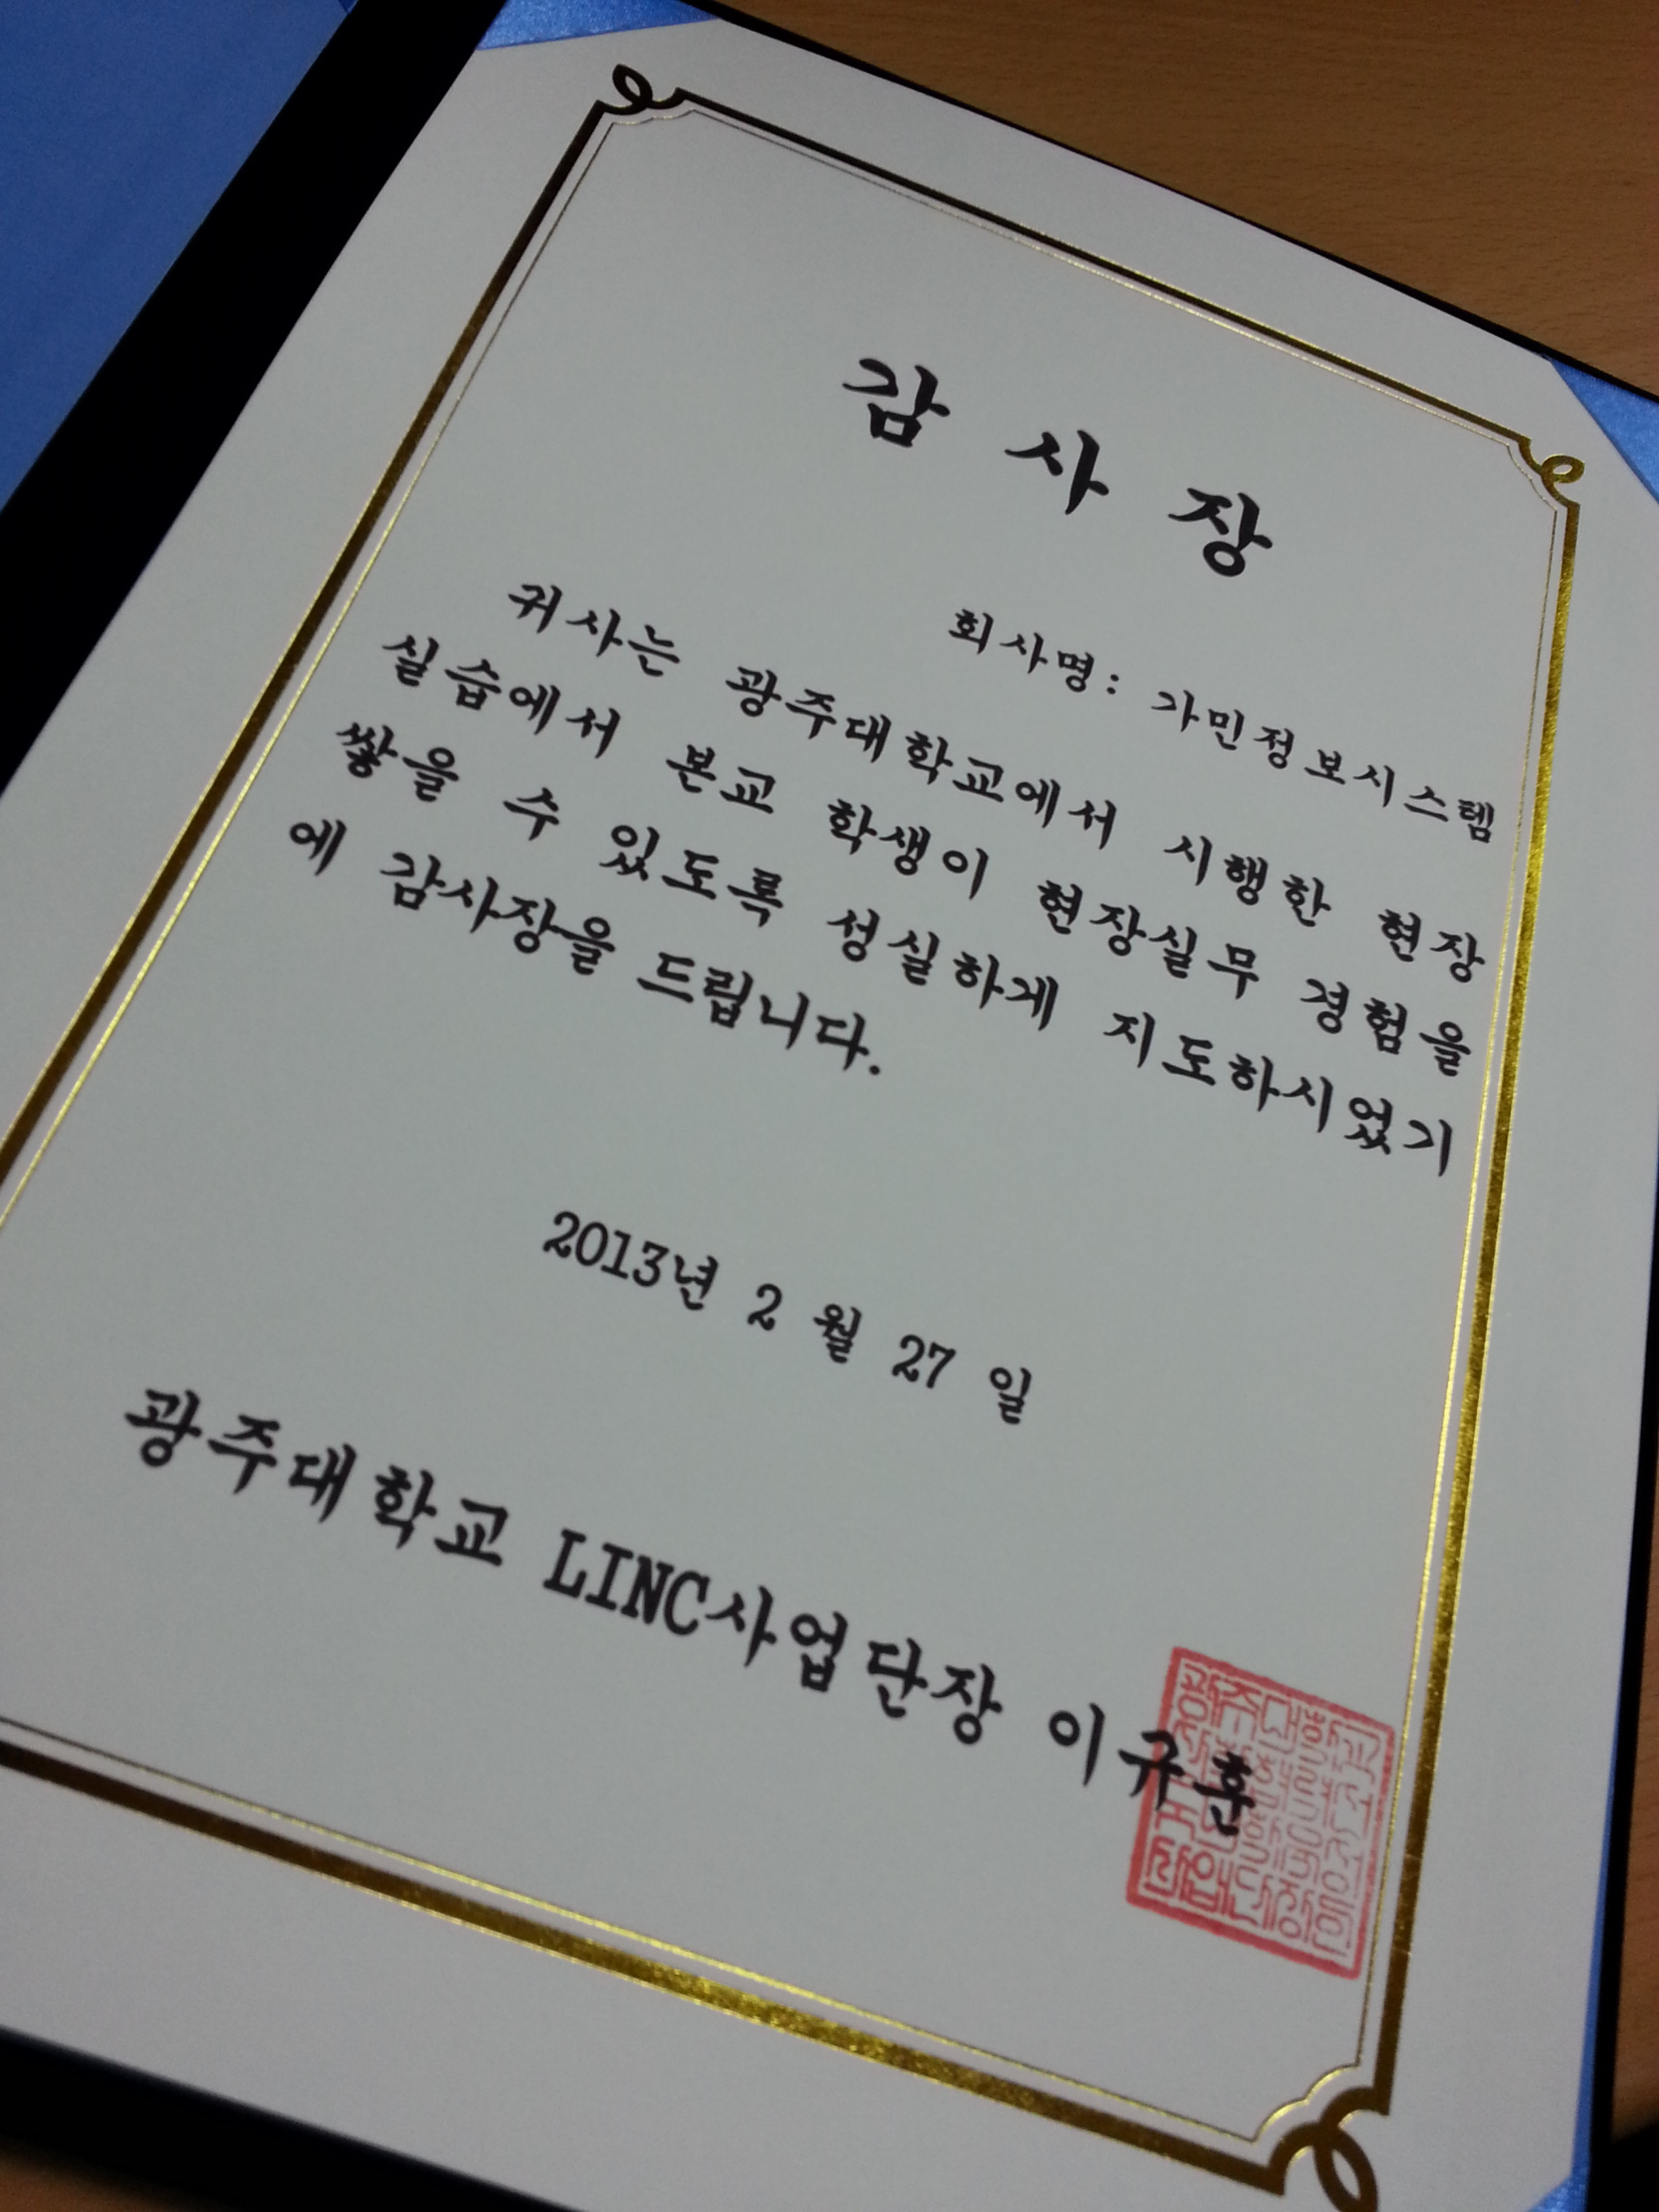 감 사 장
회사명: 가민정보시스템
귀사는 광주대학교에서 시행한 현장
실습에서 본교 학생이 현장실무 경험을
쌓을 수 있도록 성실하게 지도하시었기
에 감사장을 드립니다.
2013년 2 월 27 일
광주대학교 LINC사업단장 이규훈